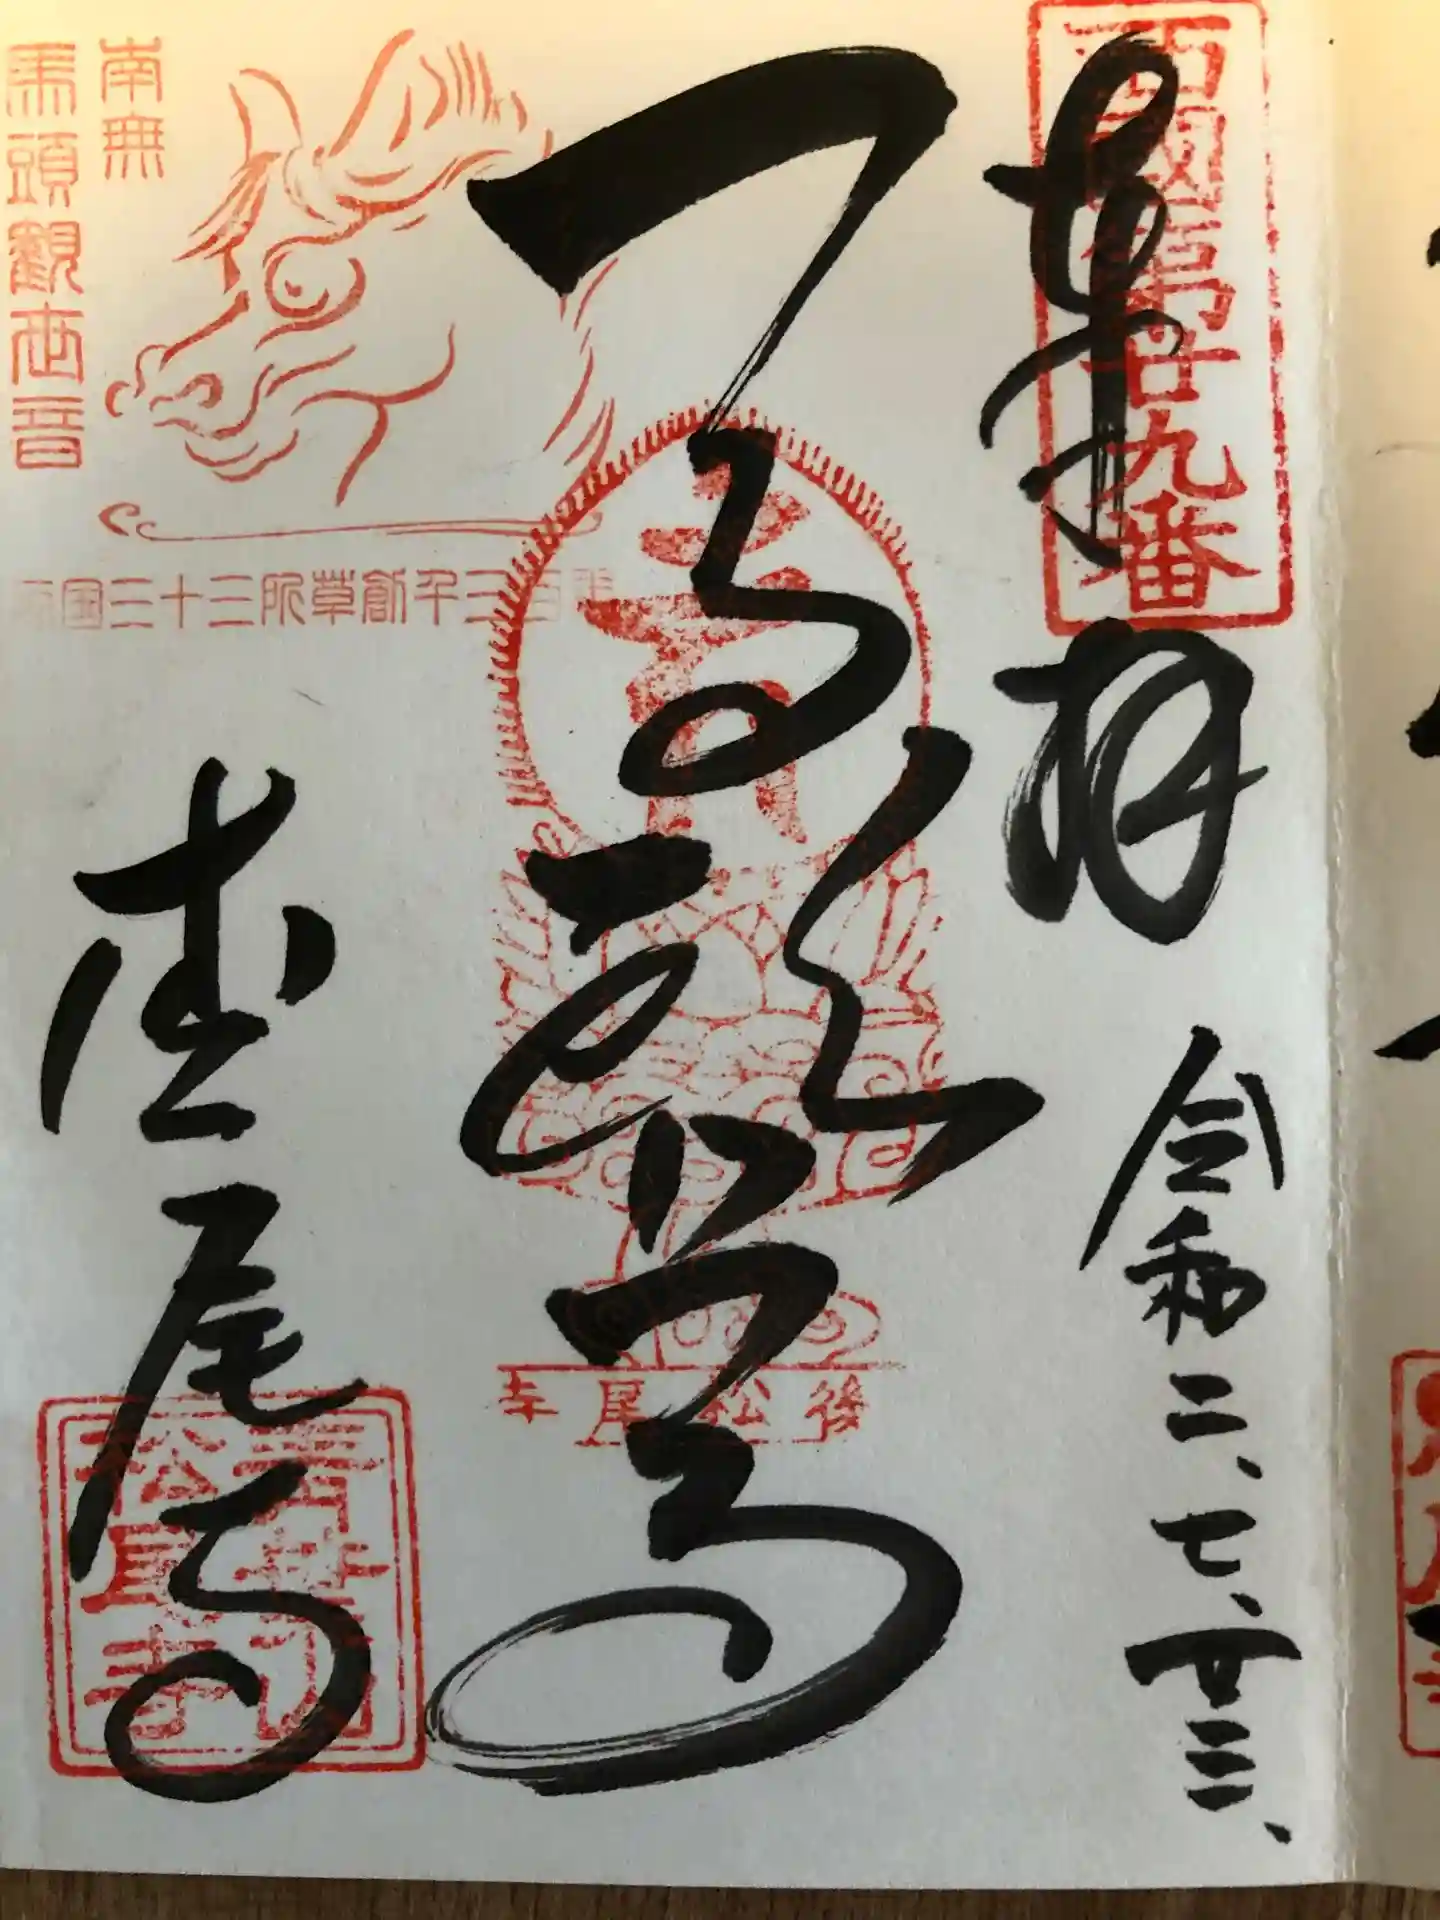 西國第廿九番
奉拝
令和二、七、廿三、
馬頭尊
松尾寺
南無
馬頭觀世音
西国三十三所草創千三百年
後松尾寺
青葉山
松尾寺